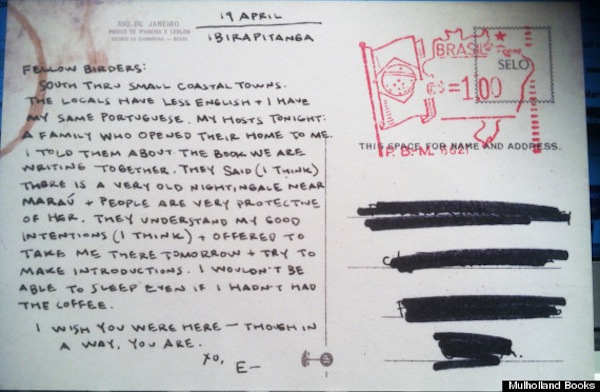 RIO DE JANEIRO
19 APRIL
IBIRAPITANGA
FELLOW BIRDERS:
SOUTH THRU SMALL COASTAL TOWNS.
THE LOCALS HAVE LESS ENGLISH + I HAVE
MY SAME PORTUGUESE. MY HOSTS TONIGHT:
A FAMILY WHO OPENED THEIR HOME TO ME.
I TOLD THEM ABOUT THE BOOK WE ARE
WRITING TOGETHER. THEY SAID (I THINK)
THERE IS A VERY OLD NIGHTINGALE NEAR
MARAÚ + PEOPLE ARE VERY PROTECTIVE
OF HER. THEY UNDERSTAND MY GOOD
INTENTIONS (I THINK) + OFFERED TO
TAKE ME THERE TOMORROW + TRY TO
MAKE INTRODUCTIONS. I WOULDN'T BE
ABLE TO SLEEP EVEN IF I HADN'T HAD
THE COFFEE.
I WISH YOU WERE HERE — THOUGH IN
A WAY, YOU ARE.
XO,
E—
BRASIL
SELO
=1,00
P.B.M.
THIS SPACE FOR NAME AND ADDRESS.
Mulholland Books